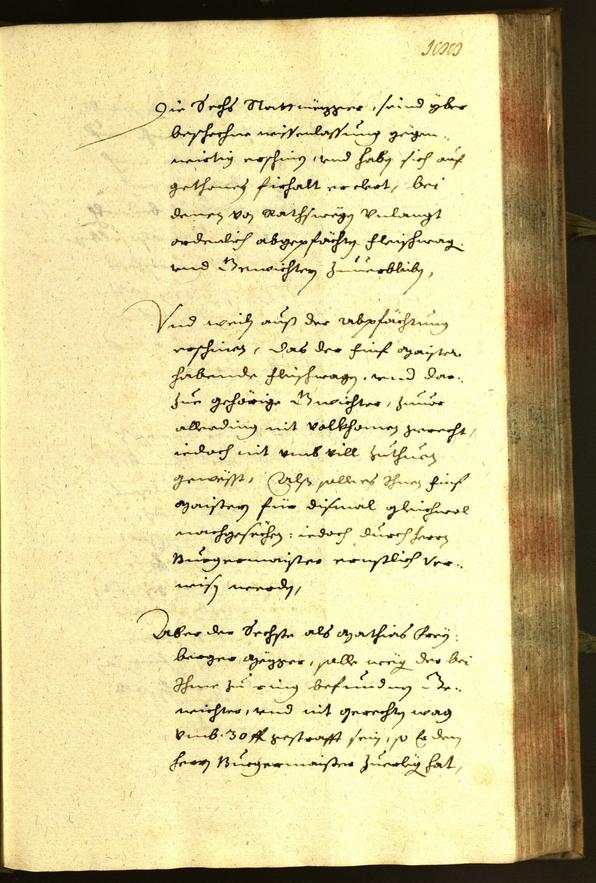 Die Sechs Stattmezger, seind yber
beschechne wissenlassung gegen-
wertig erschinen, und haben sich auf
gethonen firhalt erclert, bei
denen von Rathswegen unlangst
ordenlich abgepfächten Fleischwag
und Gewichten zuuerbleiben,
Und weilen auß der Abpfächtung
erschinen, das der finf Maister
habende Fleischwagen, und dar-
zue gehörige Gwichter, zwar
allerdings nit volkhomen gerecht,
iedoch nit umb vill zuthuen
gewesst, Alß solle es Ihnen finf
Maistern für dismal gleichwol
nachgesechen: iedoch durch herrn
Burgermaister ernstlich ver-
wisen werden,
Aber der Sechste als Mathias
berger Mezger, solle wegen der bei
Ihme zu ring befundnen Ge-
wichter, und nit gerechten wag
umb 30 fl gestrafft sein, so Er dem
herrn Burgermaister zuerlegen hat,